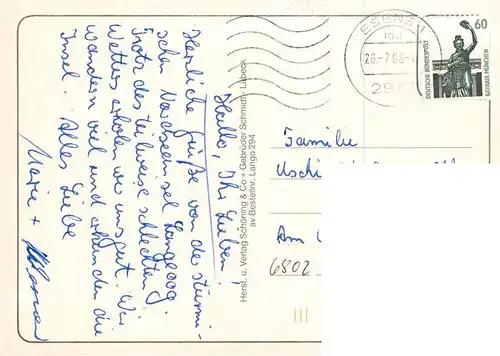 Hallo, Ihr Lieben!
Herzliche Grüße von der stürmi-
schen Nordseeinsel Langeoog.
Trotz des teilweise schlechten
Wetters erholen wir uns gut. Wir
wandern viel und erkunden die
Insel. Alles Liebe
Marie +
Herst. u. Verlag Schöning & Co + Gebrüder Schmidt - Lübeck
av Bestellnr. Lango 294
ESENS
26.-7.88-
294
60
DEUTSCHE BUNDESPOST
BAVARIA MÜNCHEN
Familie
Uschi
Am
6802